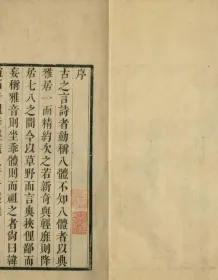 序
古之言詩者動稱八體不知八體者以典
雅居一而精約次之若新奇與輕靡則降
居七八之間今以草野而言與挾俚鄙而
妄稱雅音則坐乖體則而祖之者尙曰韓